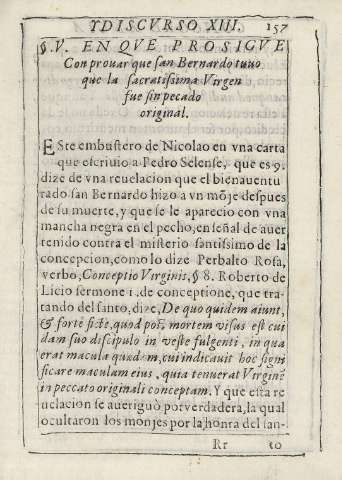 Y DISCVRSO XIII. 157
§. V. EN QVE PROSIGVE
Con prouar que san Bernardo tuuo
que la sacratissima Virgen
fue sin pecado
original.
ESte embustero de Nicolao en vna carta
que escriuio a Pedro Selense, que es 9.
dize de vna reuelacion que el bienauentu
rado san Bernardo hizo a vn mõje despues
de su muerte, y que se le aparecio con vna
mancha negra en el pecho, en señal de auer
tenido contra el misterio santissimo de la
concepcion, como lo dize Perbalto Rosa,
verbo, Conceptio Virginis, § 8. Roberto de
Licio sermone 1. de conceptione, que tra-
tando del santo, dize, De quo quidem aiunt,
& forte ficte, quod post mortem visus est cui
dam suo discipulo in veste fulgenti, in qua
erat macula quædam, cui indicauit hoc signi
ficare maculam eius, quia tenuerat Virginẽ
in peccato originali conceptam. Y que esta re
uelacion se aueriguò por verdadera, la qual
ocultaron los monjes por la honra del san-
Rr to